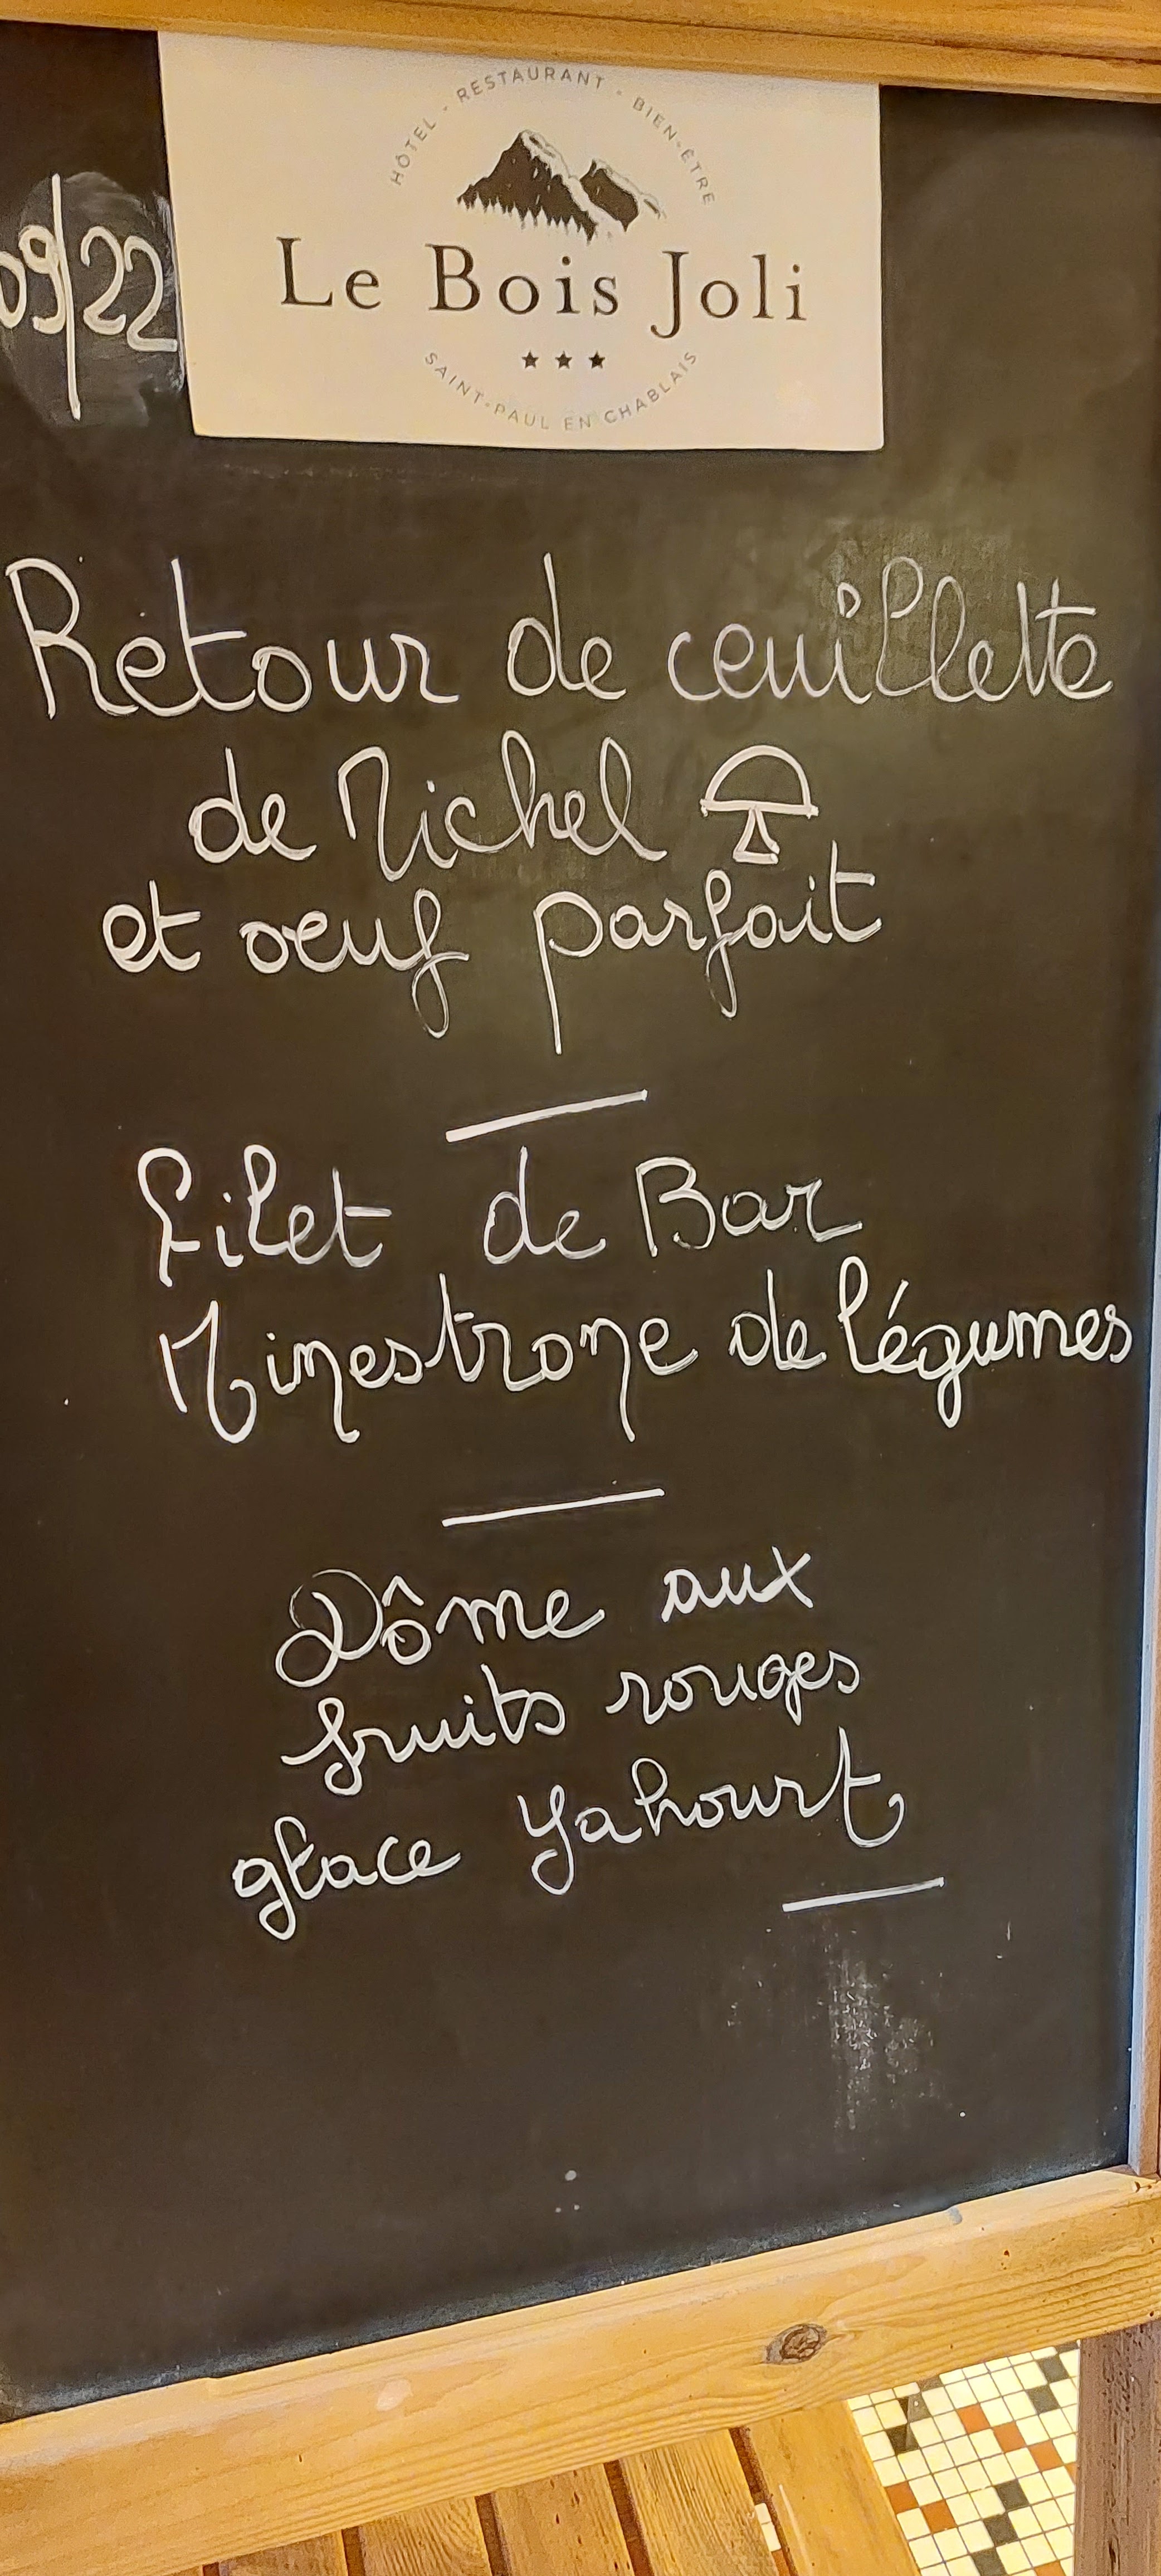 HÔTEL - RESTAURANT - BIEN-ÊTRE
Le Bois Joli
SAINT-PAUL EN CHABLAIS
09/22
Retour de ceuillette
de Michel
et oeuf parfait
Filet de Bar
Minestrone de légumes
Dôme aux
fruits rouges
glace Yahourt